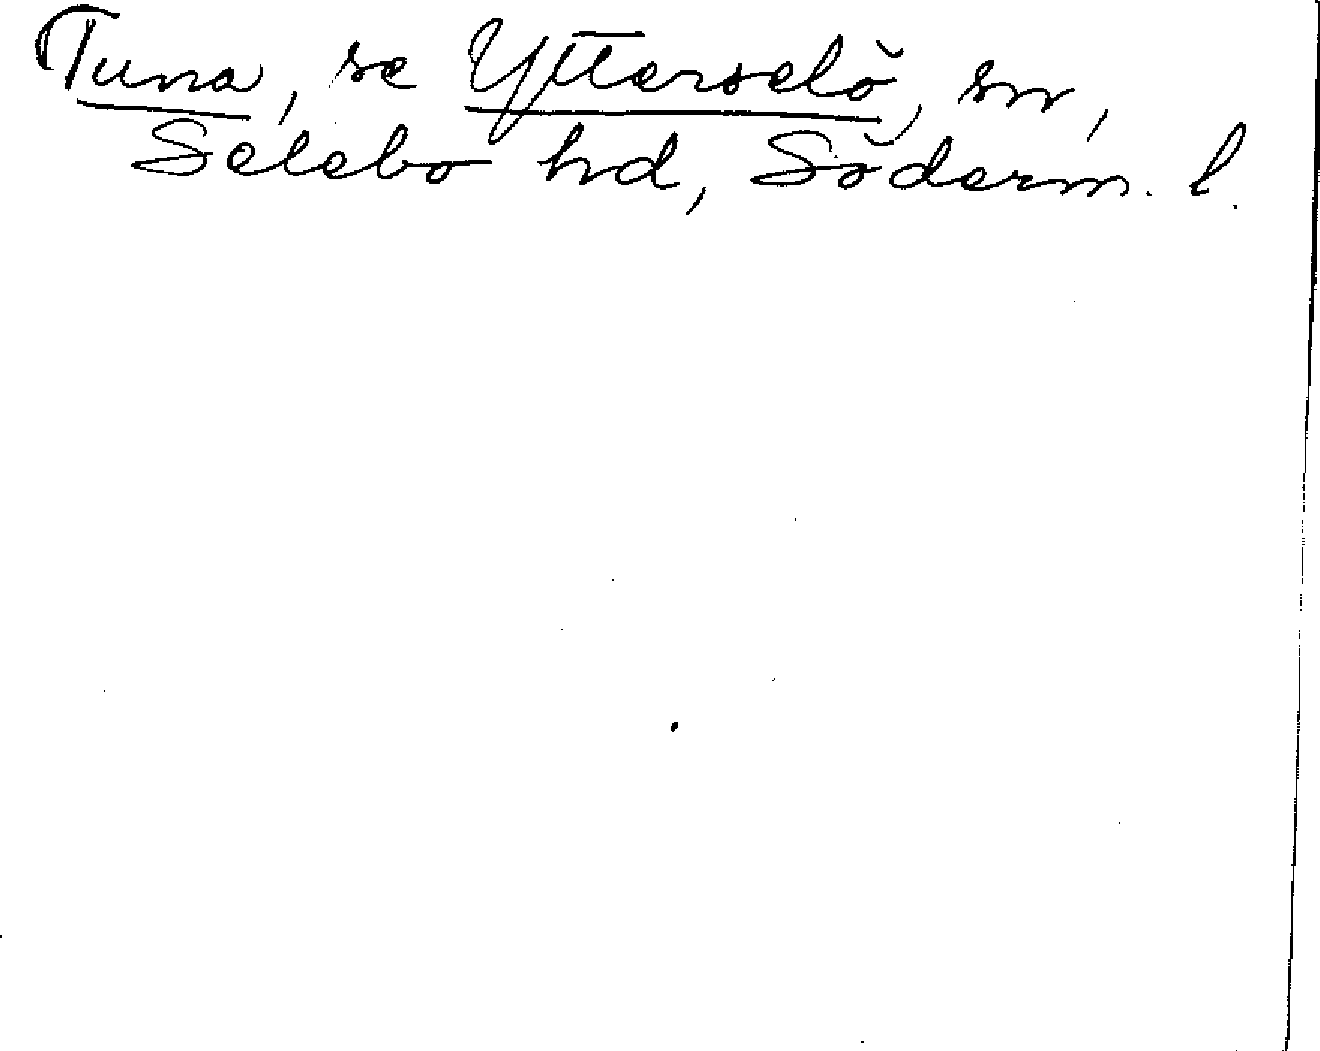 Tuna, se Ytterselö, sn,
Selebo hd, Söderm. l.